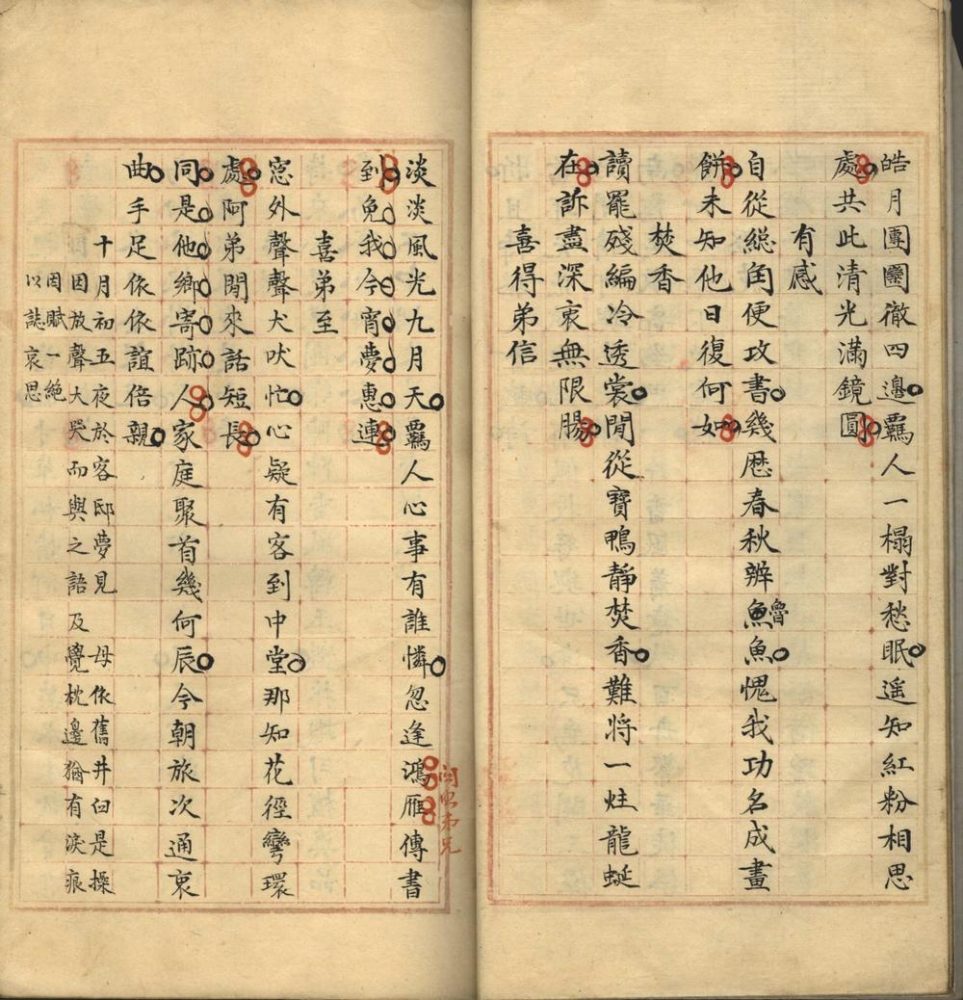 皓月團團徹四邊羈人一榻對愁眠遥知紅粉相思
處共此清光滿鏡圓
有感
自從総角便攻書幾歴春秋辨魚魯魚愧我功名成畫
餅未知他日復何如
焚香
讀罷殘編冷透裳閒從寶鴨静焚香難將一炷龍蜒
在訴盡深衷無限腸
喜得弟信
淡淡風光九月天羈人心事有誰憐忽逢鴻雁傳書
到免我今宵夢惠連
喜弟至
窓外聲聲犬吠忙心疑有客到中堂那知花徑彎環
處阿弟閒來話短長
同是他鄉寄跡人家庭聚首幾何辰今朝旅次通衷
曲手足依依誼倍親
十月初五夜於客邸夢見 母依舊井臼是操
因放聲大哭而與之語及覺枕邊猶有淚痕
因賦一絶
以誌哀思